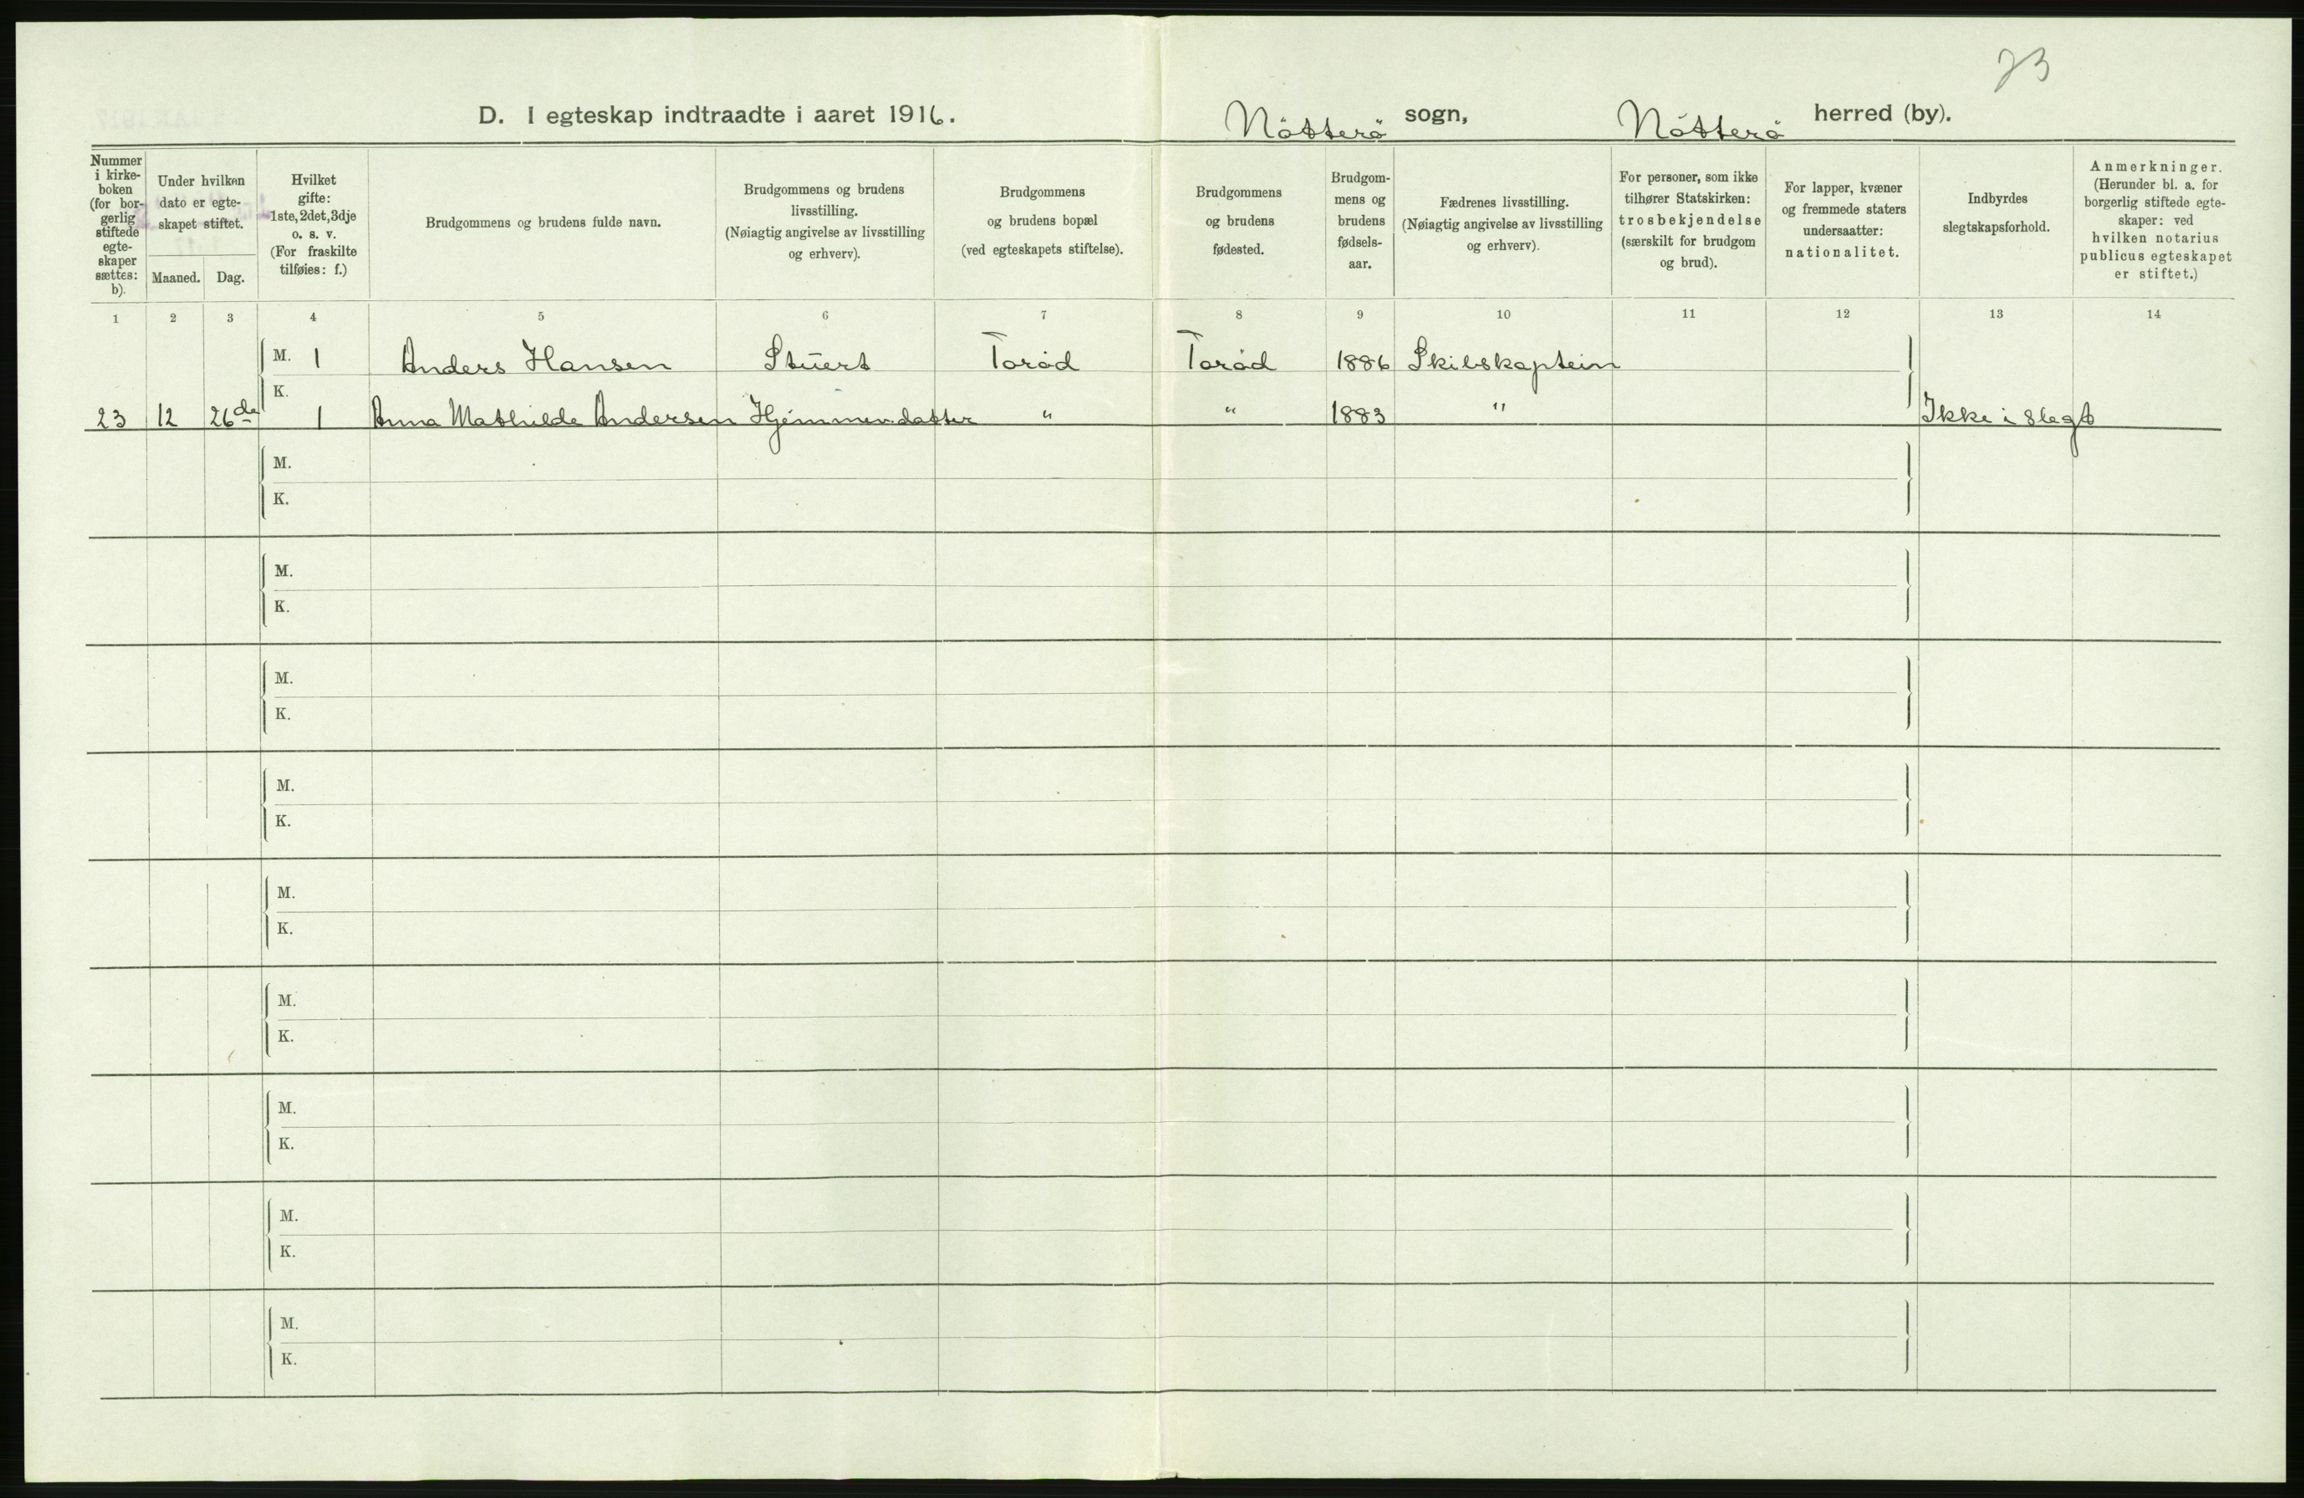 23
D. I egteskap indtraadte i aaret 1916. Nötterö sogn, Nötterö herred (by).
Nummer i kirke-boken (for bor-gerlig stiftede egte-skaper sættes: b).
Under hvilken dato er egte-skapet stiftet.
Maaned. Dag.
Hvilket gifte: 1ste, 2det, 3dje o. s. v. (For fraskilte tilføies: f.)
Brudgommens og brudens fulde navn.
Brudgommens og brudens livsstilling. (Nøiagtig angivelse av livsstilling og erhverv).
Brudgommens og brudens bopæl (ved egteskapets stiftelse).
Brudgommens og brudens fødested.
Brudgom-mens og brudens fødsels-aar.
Fædrenes livsstilling. (Nøiagtig angivelse av livsstilling og erhverv).
For personer, som ikke tilhører Statskirken: trosbekjendelse (særskilt for brudgom og brud).
For lapper, kvæner og fremmede staters undersaatter: nationalitet.
Indbyrdes slegtskapsforhold.
Anmerkninger. (Herunder bl. a. for borgerlig stiftede egte-skaper: ved hvilken notarius publicus egteskapet er stiftet.)
1 2 3 4 5 6 7 8 9 10 11 12 13 14
M. 1 Anders Hansen Stuert Torød Torød 1886 Skibskaptein
K.
23 12 26de 1 Anna Mathilde Andersen Hjemmev.datter " " 1883 " Ikke i slegt
M.
K.
M.
K.
M.
K.
M.
K.
M.
K.
M.
K.
M.
K.
M.
K.
M.
K.